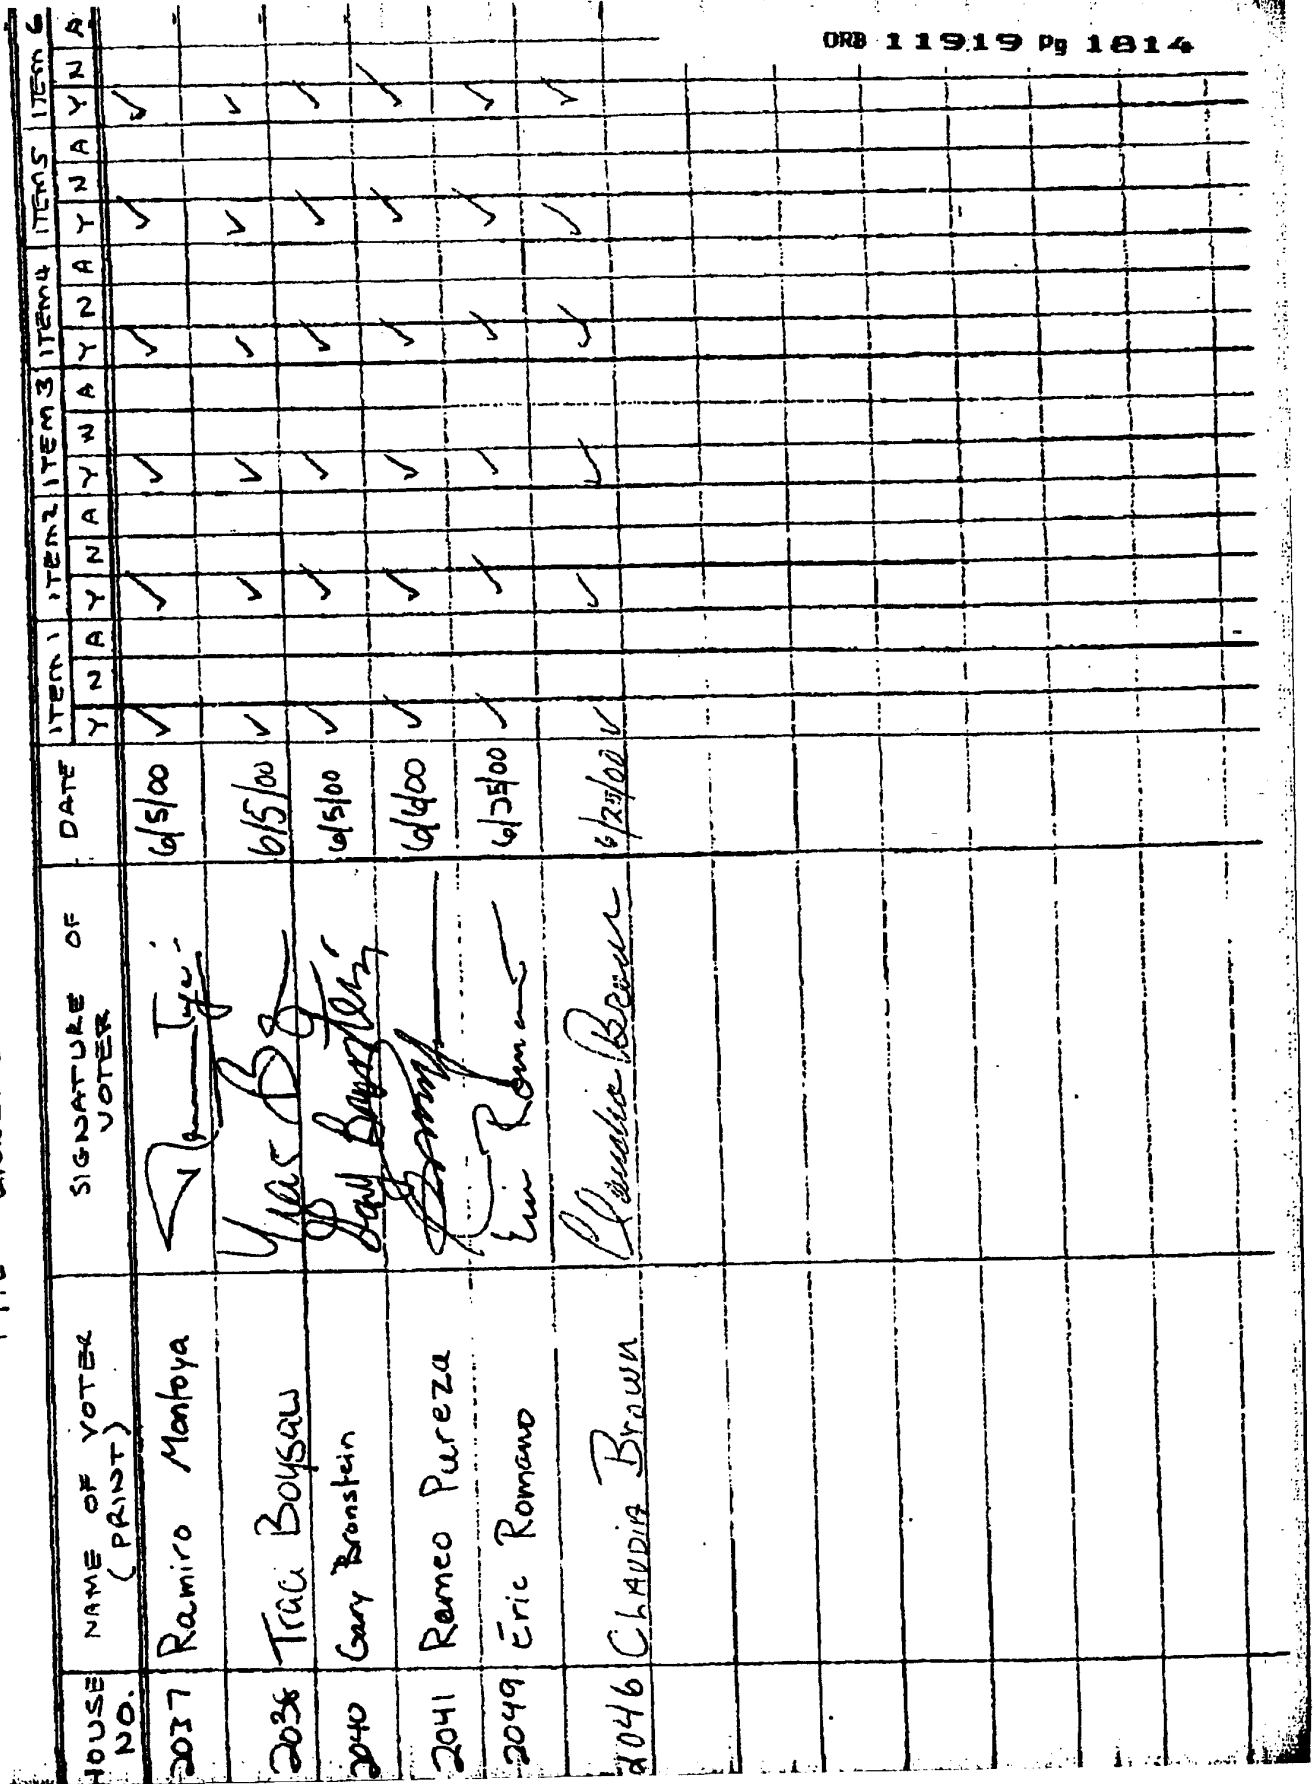 ORB 11919 Pg 1814
HOUSE NO. NAME OF VOTER (PRINT) SIGNATURE OF VOTER DATE ITEM 1 ITEM 2 ITEM 3 ITEM 4 ITEM 5 ITEM 6
Y N A Y N A Y N A Y N A Y N A Y N A
2037 Ramiro Montoya 6/5/00 ✓ ✓ ✓ ✓ ✓ ✓
2038 Traci Boysaw 6/5/00 ✓ ✓ ✓ ✓ ✓ ✓
2040 Gary Bronstein Gary Bronstein 6/5/00 ✓ ✓ ✓ ✓ ✓ ✓
2041 Romeo Pureza 6/6/00 ✓ ✓ ✓ ✓ ✓ ✓
2049 Eric Romano Eric Romano 6/25/00 ✓ ✓ ✓ ✓ ✓ ✓
2046 Claudia Brown Claudia Brown 6/25/00 ✓ ✓ ✓ ✓ ✓ ✓